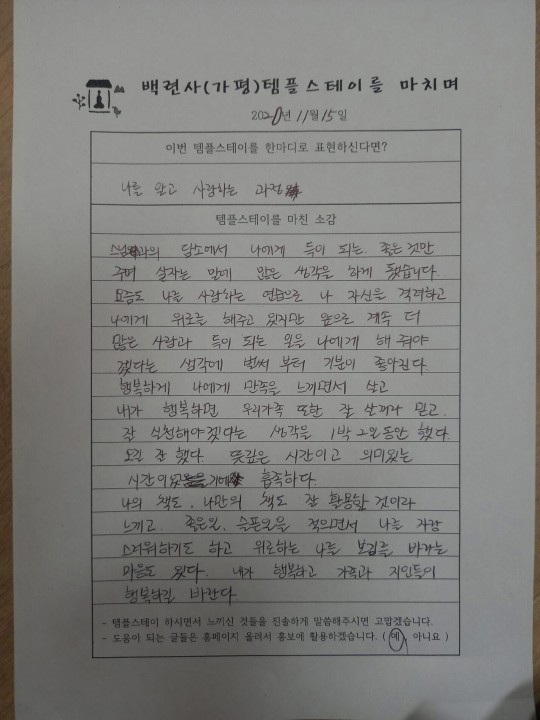 백련사(가평)템플스테이를 마치며
2020년 11월 15일
이번 템플스테이를 한마디로 표현하신다면?
나를 알고 사랑하는 과정
템플스테이를 마친 소감
스님과의 담소에서 나에게 득이 되는. 좋은것만
주며 살자는 말에 많은 생각을 하게 됐습니다.
요즘도 나를 사랑하는 연습으로 나 자신을 격려하고
나에게 위로를 해주고 있지만 앞으로 계속 더
많은 사람과 득이 되는 일을 나에게 해 줘야
겠다는 생각에 벌써 부터 기분이 좋아진다.
행복하게 나에게 만족을 느끼면서 살고
내가 행복하면 우리가족 또한 잘 살꺼라 믿고.
잘 실천해야겠다는 생각을 1박 2일동안 했다.
오길 잘 했다. 뜻깊은 시간이고 의미있는
시간이었 흡족하다.
나의 책도, 나만의 책도 잘 활용할 것이라
느끼고. 좋은일, 슬픈일을 적으면서 나를 자랑
스러워하기도 하고 위로하는 나를 보길를 바라는
마음도 있다. 내가 행복하고 가족과 지인들이
행복하길 바란다.
- 템플스테이 하시면서 느끼신 것들을 진솔하게 말씀해주시면 고맙겠습니다.
- 도움이 되는 글들은 홈페이지 올려서 홍보에 활용하겠습니다. ( 예, 아니요 )